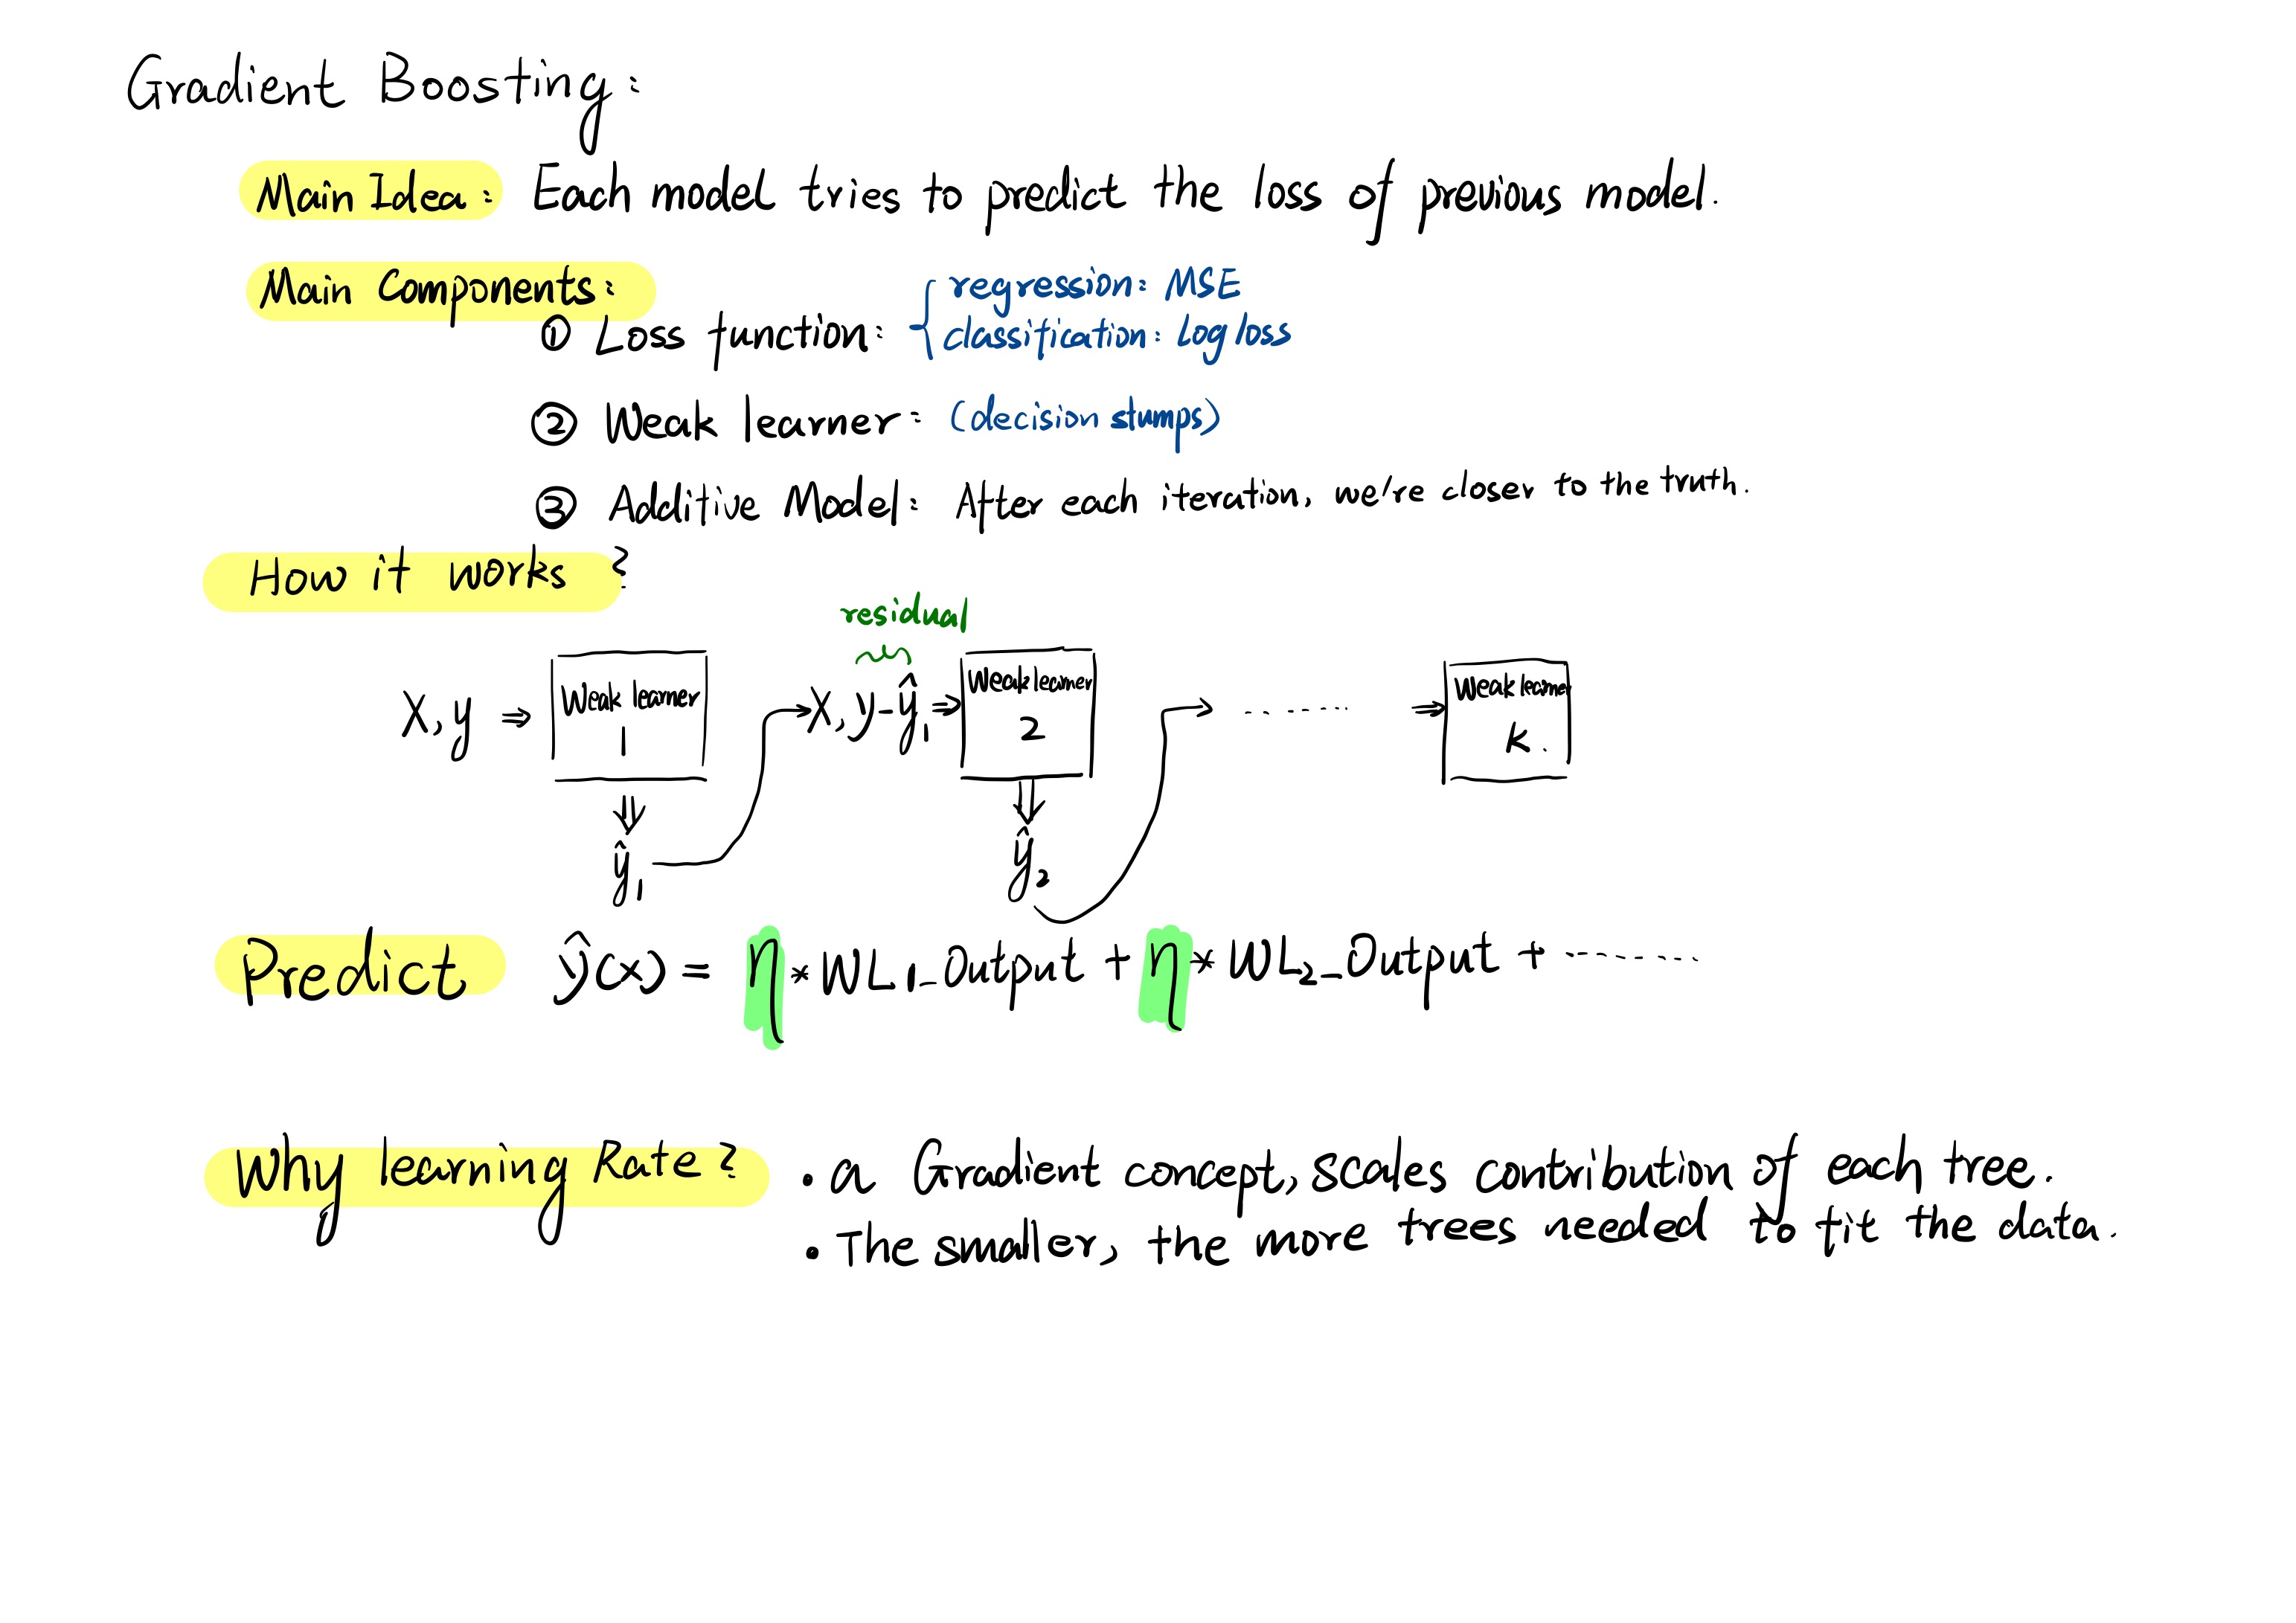 Gradient Boosting:
Main Idea: Each model tries to predict the loss of previous model.
Main Components:
① Loss function: { regression: MSE
classification: Log loss
② Weak learner: (decision stumps)
③ Additive Model: After each iteration, we're closer to the truth.
How it works?
residual
X, y ⇒ Weak learner 1
X, y-ŷ₁ ⇒ Weak learner 2
→ ....... ⇒ Weak learner K.
ŷ₁
ŷ₂
Predict ŷ(x) = η * WL1_Output + η * WL2_Output + .......
Why learning Rate? • a Gradient concept, scales contribution of each tree.
• The smaller, the more trees needed to fit the data.